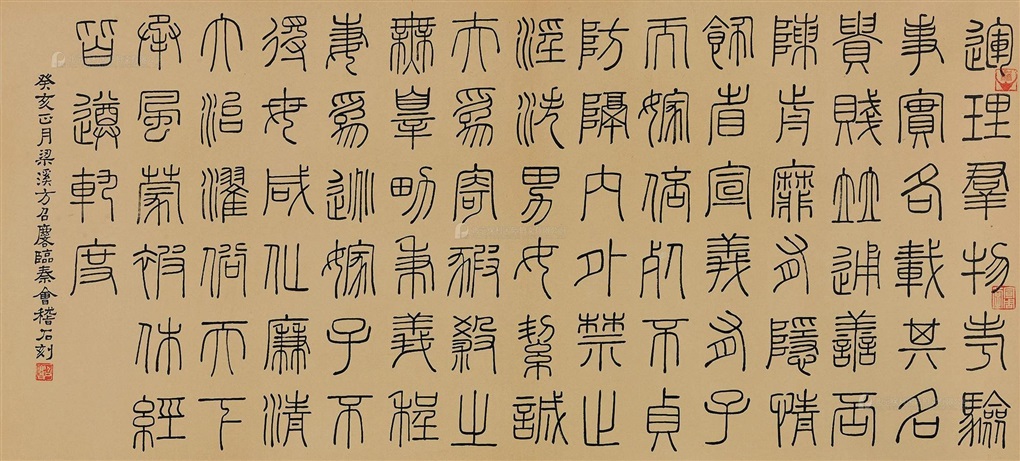 運理羣物考驗
事實各載其名
貴賤並通善否
陳前靡有隱情
飾省宣義有子
而嫁倍死不貞
防隔內外禁止
淫泆男女絜誠
夫爲寄豭殺之
無辠男秉義程
妻爲逃嫁子不
得母咸化廉清
大治濯俗天下
承風蒙被休經
皆遵軌度
癸亥正月梁溪方召麐臨秦會稽石刻